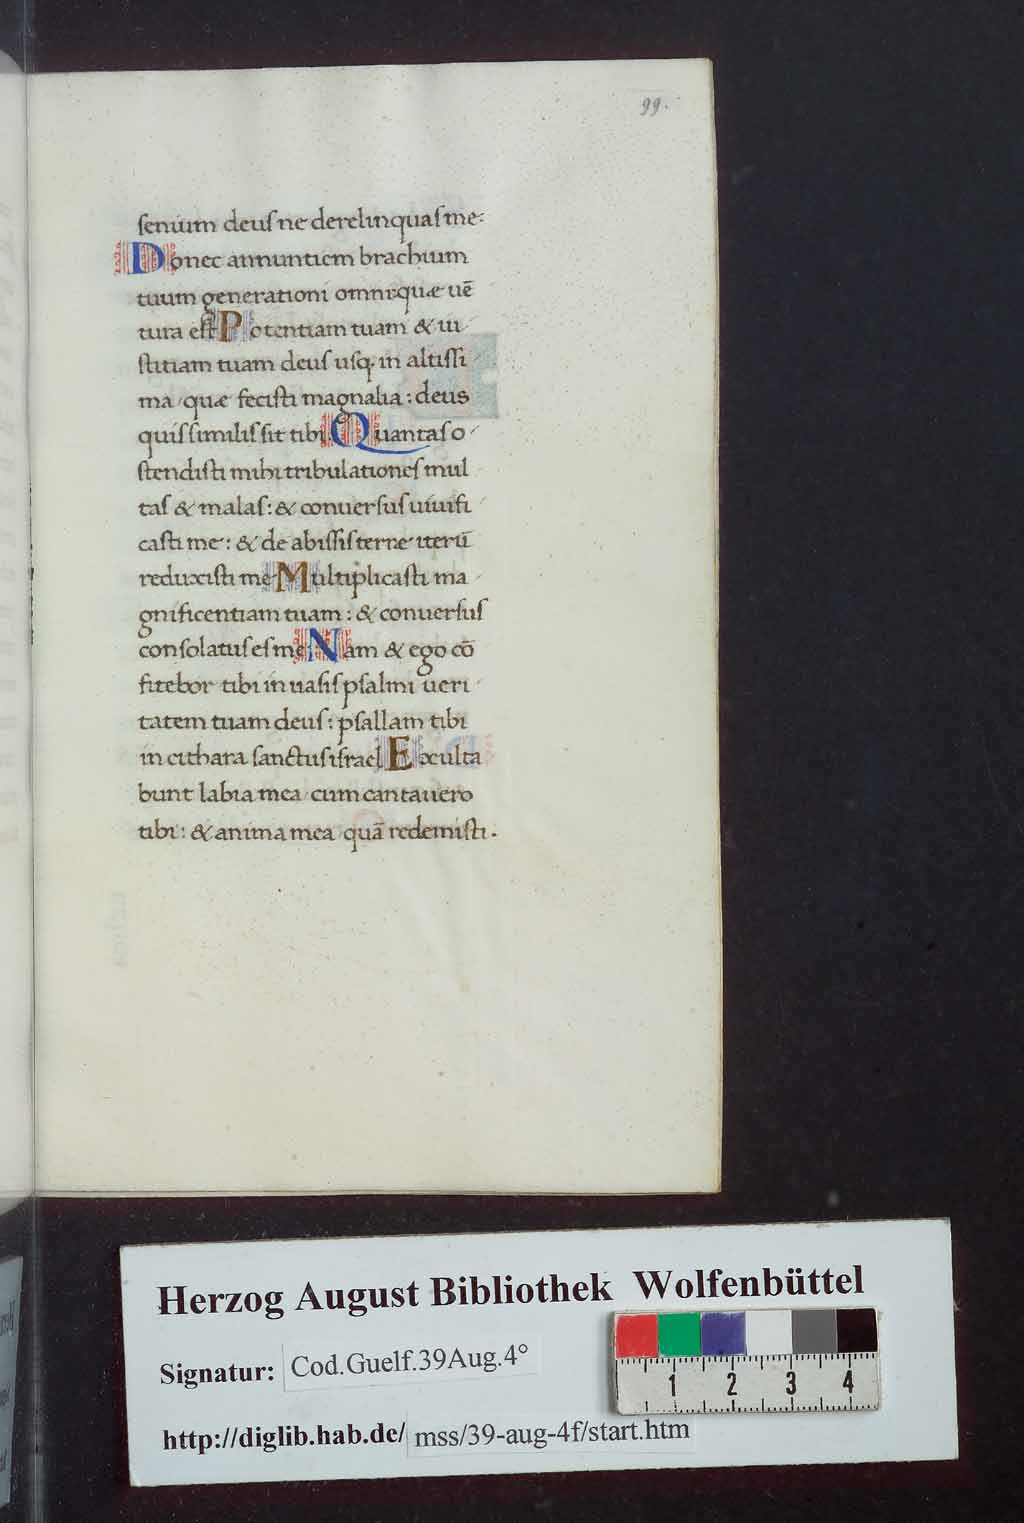 99.
senium deus ne derelinquas me:
Donec annuntiem brachium
tuum generationi omni: quæ uē
tura est Potentiam tuam & iu
stitiam tuam deus usq. in altissi
ma quæ fecisti magnalia: deus
quis similis sit tibi. Quantas o
stendisti mihi tribulationes mul
tas & malas: & conuersus uiuifi
casti me: & de abissis terre iterū
reduxisti me Multiplicasti ma
gnificentiam tuam: & conuersus
consolatus es me. Nam & ego cō
fitebor tibi in uasis psalmi ueri
tatem tuam deus: psallam tibi
in cithara sanctus israel Exculta
bunt labia mea cum cantauero
tibi: & anima mea quā redemisti.
Herzog August Bibliothek Wolfenbüttel
Signatur: Cod.Guelf.39Aug.4°
1 2 3 4
http://diglib.hab.de/ mss/39-aug-4f/start.htm